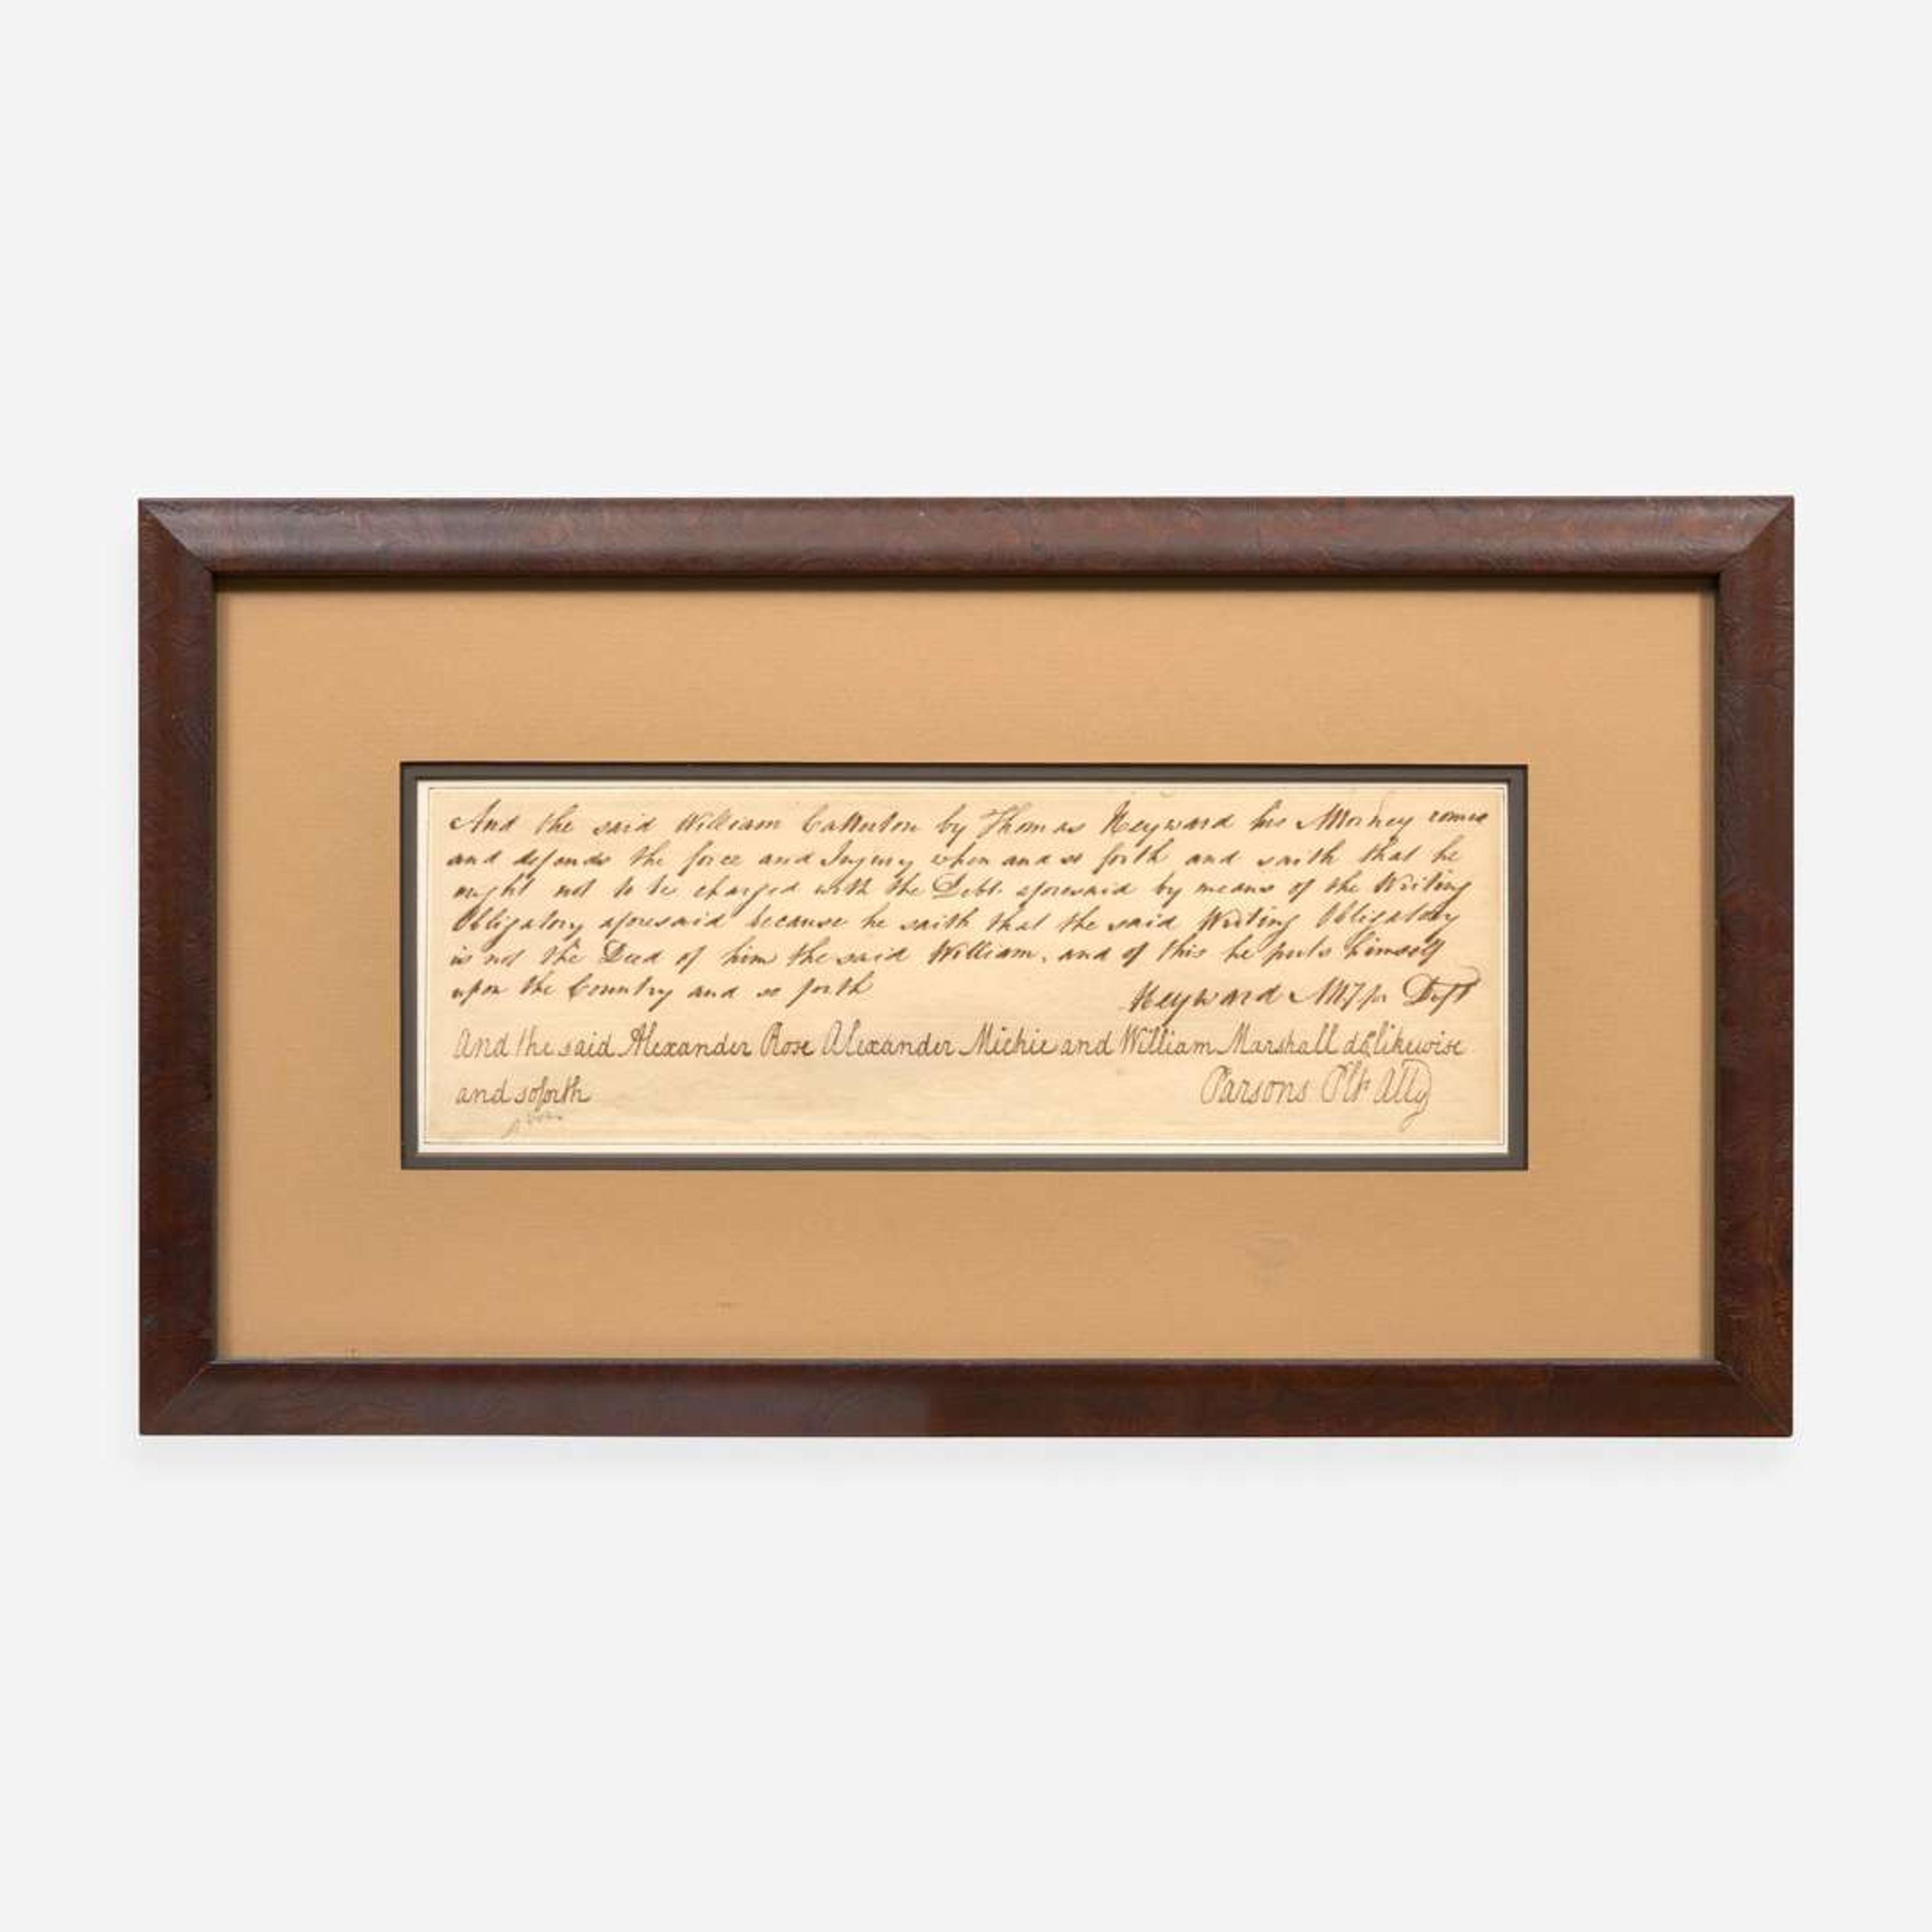 And the said William Catterton by Thomas Heyward his Attorney comes
and defends the force and Injury when and so forth and saith that he
ought not to be charged with the Debt aforesaid by means of the Writing
Obligatory aforesaid because he saith that the said Writing Obligatory
is not the Deed of him the said William, and of this he puts himself
upon the Country and so forth
Heyward Atty for Deft
And the said Alexander Rose Alexander Michie and William Marshall do likewise
and soforth
Parsons Plts Atty